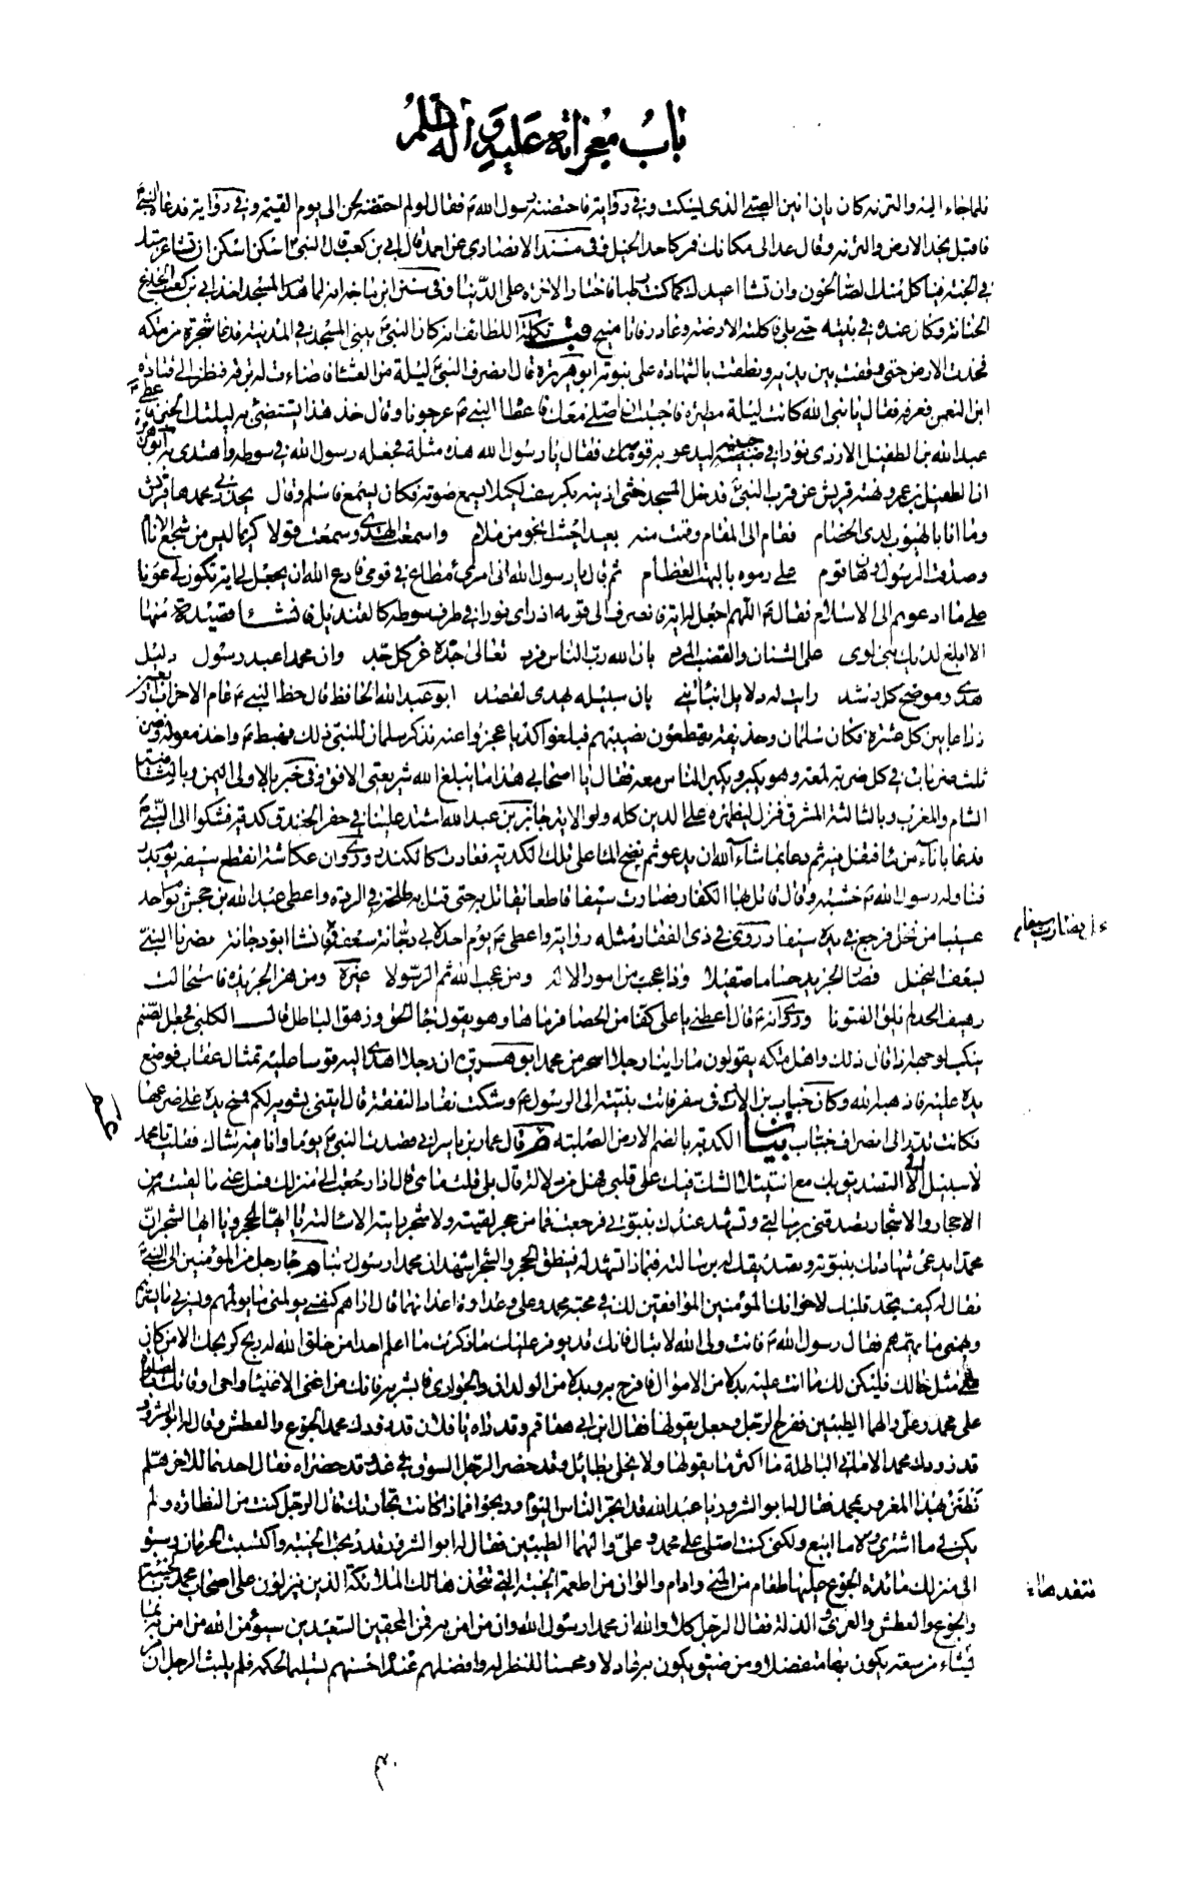 باب معجزاته عليه وآله السلم
فلما جاء اليه والتزمه كان يان انين الصبي الذي يسكت وفي رواية فاحتضنه رسول الله ص فقال لو لم احتضنه لحن الى يوم القيمة وفي رواية فدعا النبي ص
فاقبل يخد الارض والتزمه وقال عد الى مكانك فمر كاحد الخيل وفي مسند الانصاري عن احمد قال ابي بن كعب قال النبي اسكن اسكن ان تشأ غرستك
في الجنة فياكل منك الصالحون وان تشأ اعيدك كما كنت رطبا فاختار الاخرة على الدنيا وفي سنن ابن ماجه انه لما هدم المسجد اخذ ابي بن كعب الجذع
الحنانة فكان عنده في بيته حتى بلي فاكلته الارضة وعاد رفاتا تكملة اللطائف انه كان النبي ص يبني المسجد في المدينة فدعا شجرة من مكة
فخدت الارض حتى وقفت بين يديه ونطقت بالشهادة على نبوته ابو هريرة قال انصرف النبي ص ليلة من العشاء فاضاءت له برقة فنظر الى قتادة
ابن النعمن فعرفه فقال يا نبي الله كانت ليلة مطيرة فاحببت ان اصلي معك فاعطاه النبي ص عرجونا وقال خذ هذا تستضئ به ليلتك الخبر
عبد الله بن الطفيل الازدي نورا في جبينه ليدعو به قومه فقال يا رسول الله هذه مثلة فجعله رسول الله في سوطه واهتدى به ابو هريرة
اتا الطفيل بن عمرو نهته قريش عن قرب النبي ص فدخل المسجد فحشى اذنيه بكرسف لكيلا يسمع صوته فكان يسمع فاسلم وقال يحذرني محمدها قريش
وما انا بالهيوب لدى الخصام فقام الى المقام وقمت منه بعيدا حيث انجو من ملام واسمعت الهدى وسمعت قولا كريما ليس من سجع الانام
وصدقت الرسول وهان قوم على رموه بالبهت العظام ثم قال يا رسول الله اني امرؤ مطاع في قومي فادع الله ان يجعل لي اية تكون لي عونا
على ما ادعوهم الى الاسلام فقال ص اللهم اجعل له اية فانصرف الى قومه اذ رأى نورا في طرف سوطه كالقنديل فانشأ قصيدة منها
الا ابلغ لديك بني لوي على الشنان والغضب المرد بان الله رب الناس فرد تعالى جده عن كل جد وان محمدا عبد رسول دليل
هدى وموضح كل رشد رايت له دلايل انباتني بان سبيله يهدي لقصد ابو عبد الله الحافظ قال خط النبي ص عام الاحزاب اربعين
ذراعا بين كل عشرة فكان سلمان وحذيفة يقطعون نصيبهم فبلغوا كديا عجزوا عنه فذكر سلمان للنبي ذلك فهبط ص واخذ معوله وضرب
ثلث ضربات في كل ضربة لمعة وهو يكبر ويكبر الناس معه فقال يا اصحابي هذا ما يبلغ الله شريعتي الافق وفي خبر بالاولى اليمن وبالثانية
الشام والمغرب وبالثالثة المشرق فنزل ليظهره على الدين كله ولو الاية جابر بن عبد الله اشتد علينا في حفر الخندق كدية فشكوا الى النبي ص
فدعا باناء من ماء فتفل فيه ثم دعا بما شاء الله ان يدعو ثم نضح الماء على تلك الكدية فعادت كالكندر وروي ان عكاشة انقطع سيفه يوم بدر
فناوله رسول الله ص خشبة وقال قاتل بها الكفار فصارت سيفا قاطعا يقاتل به حتى قتل به طلحة في الردة واعطى عبد الله بن جحش يوم احد
عسيبا من نخل فرجع في يده سيفا وروي في ذي الفقار مثله رواية واعطى ص يوم احد لابي دجانة سعفة فانشا ابو دجانة نصرنا النبي
بسعف النخيل فصار الجريد حساما صقيلا وذا عجب من امور الاله ومن عجب الله ثم الرسولا غيره ومن هز الجريدة فاستحالت
رهيف الحد لم يلق الفتونا وروي انه ص قال اعطني يا علي كفا من الحصا فرماها وهو يقول جاء الحق وزهق الباطل قال الكلبي فجعل الصنم
ينكب لوجهه اذا قال ذلك واهل مكة يقولون ما راينا رجلا اسحر من محمد ابو هريرة ان رجلا اهدى اليه قوسا عليه تمثال عقاب فوضع
يده عليه فاذهبه الله وكان خباب بن الارت في سفر فاتت بنيته الى الرسول ص وشكت نفاد النفقة فقال ايتني بشويهة لكم فمسح يده على ضرعها
فكانت تدر الى انصراف خباب بيان الكدية بالضم الارض الصلبة م قال عمار بن ياسر اني قصدت النبي ص يوما وانا فيه شاك فقلت يا محمد
لا سبيل الى التصديق بك مع استيلاء الشك فيك على قلبي فهل من دلالة قال بلى قلت ما هي قال اذا رجعت الى منزلك فسل عني ما لقيت من
الاحجار والاشجار تصدقني برسالتي وتشهد عندك بنبوتي فرجعت فما من حجر لقيته ولا شجر رايته الا سالته يا ايها الحجر ويا ايها الشجر ان
محمدا يدعي شهادتك بنبوته وتصديقك له برسالته فبماذا تشهد له فينطق الحجر والشجر اشهد ان محمدا رسول ربنا م جاء رجل من المؤمنين الى النبي ص
فقال له كيف تجد قلبك لاخوانك المؤمنين الموافقين لك في محبة محمد وعلي وعداوة اعدائهما قال اراهم كنفسي يولمني ما يولمهم ويسرني ما يسرهم
ويهمني ما يهمهم فقال رسول الله ص فانت ولي الله لا تبال فانك قد يوفر عليك ما ذكرت ما اعلم احدا من خلق الله له ربح كربحك الا من كان
على مثل حالك فليكن لك ما انت عليه بدلا من الاموال فافرح به وبدلا من الولد والعيال فابشر به فانك من اغنى الاغنياء واحي اوقاتك بالصلوة
على محمد وعلي والهما الطيبين ففرح الرجل وجعل يقولها فقال ابن ابي هقاقم وقد راه يا فلان قد زودك محمد الجوع والعطش وقال له ابو الشرور
قد زودك محمد الاماني الباطلة ما اكثر ما يقولها ولا يحلى بطائل وقد حضر الرجل السوق في غد وقد حضراه فقال احدهما للاخر هلم
نطنز بهذا المغرور بمحمد فقال له ابو الشرور يا عبد الله قد اتجر الناس اليوم وربحوا فماذا كانت تجارتك قال الرجل كنت من النظارة ولم
يكن لي ما اشتري ولا ما ابيع ولكني كنت اصلي على محمد وعلي والهما الطيبين فقال له ابو الشرور قد ربحت الخيبة واكتسبت الحرمان وسبق
الى منزلك مائدة الجوع عليها طعام من المنى وادام والوان من اطعمة الخيبة التي تتخذها لك الملائكة الذين ينزلون على اصحاب محمد بالخيبة
والجوع والعطش والعري والذلة فقال الرجل كلا والله ان محمدا رسول الله وان من امن به فمن المحقين السعيدين سيؤمن الله من امن به بما
يشاء من سعة يكون بها متفضلا ومن ضيق يكون به عادلا ومحسنا للنظر له وافضلهم عنده احسنهم تسليما لحكمه فلم يلبث الرجل ان